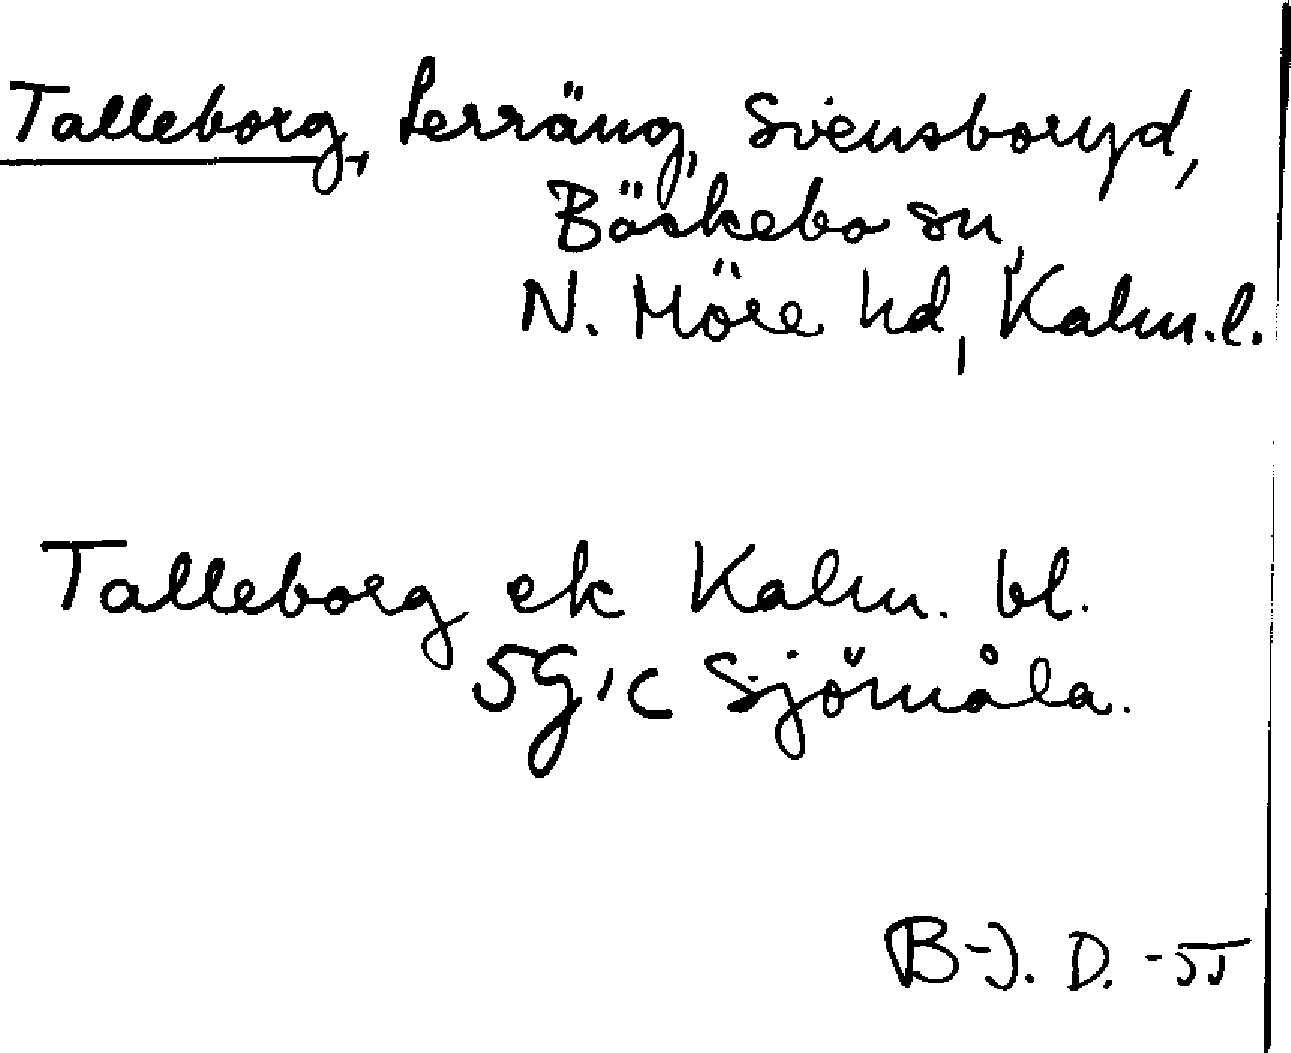 Talleborg, Lerräng, Svensboryd,
Bäckebo sn,
N. Möre hd, Kalm. l.
Talleborg ek Kalm. bl.
5G,c Sjömåla.
B-J. D. -55